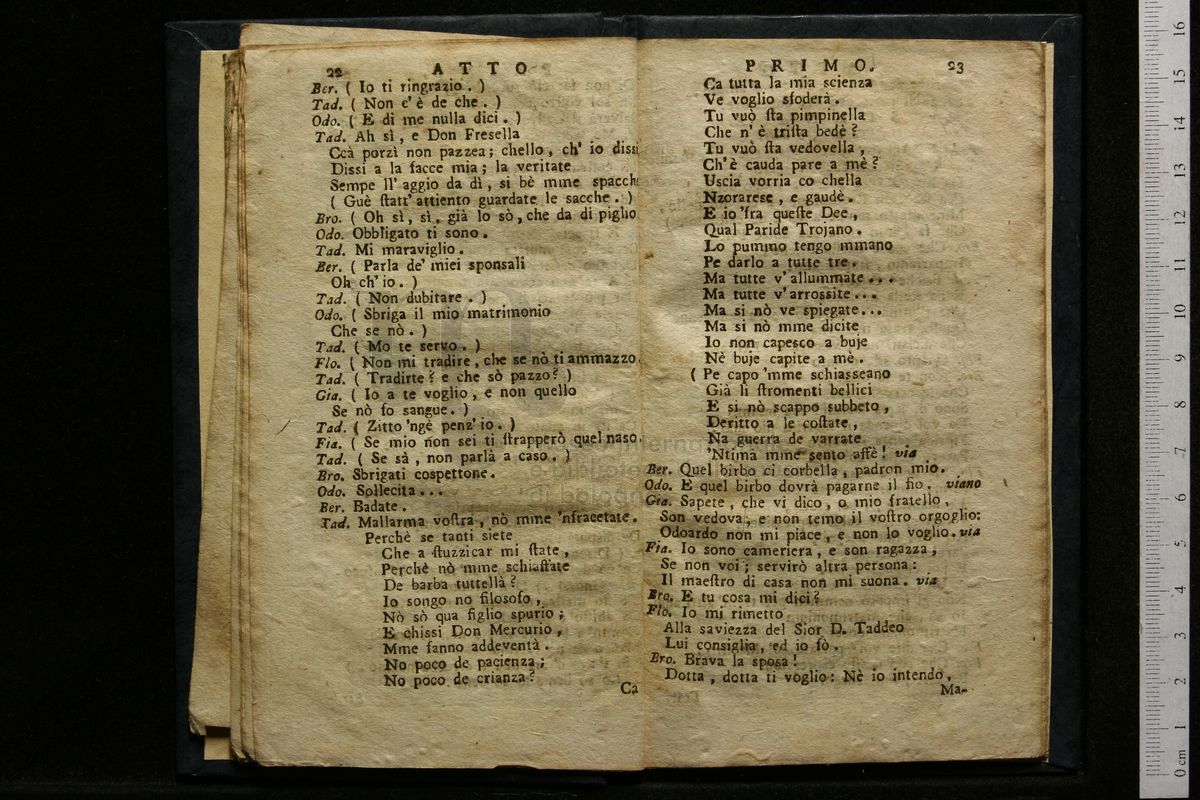 22 ATTO
Ber. ( Io ti ringrazio . )
Tad. ( Non c' è de che . )
Odo. ( E di me nulla dici . )
Tad. Ah sì , e Don Fresella
Ccà porzì non pazzea ; chello , ch' io dissi
Dissi a la facce mia ; la veritate
Sempe ll' aggio da dì , si bè mme spacche
( Guè statt' attiento guardate le sacche . )
Bro. ( Oh sì , sì , già lo sò , che da di piglio
Odo. Obbligato ti sono .
Tad. Mi maraviglio .
Ber. ( Parla de' miei sponsali
Oh ch' io . )
Tad. ( Non dubitare . )
Odo. ( Sbriga il mio matrimonio
Che se nò . )
Tad. ( Mo te servo . )
Flo. ( Non mi tradire , che se nò ti ammazzo.
Tad. ( Tradirte ? e che sò pazzo ? )
Gia. ( Io a te voglio , e non quello
Se nò fo sangue . )
Tad. ( Zitto 'ngè penz' io . )
Fia. ( Se mio non sei ti strapperò quel naso.
Tad. ( Se sà , non parlà a caso . )
Bro. Sbrigati cospettone .
Odo. Sollecita ...
Ber. Badate .
Tad. Mallarma vostra , nò mme 'nfracetate .
Perchè se tanti siete
Che a stuzzicar mi state ,
Perchè nò mme schiaffate
De barba tuttellà ?
Io songo no filosofo ,
Nò sò qua figlio spurio ;
E chissi Don Mercurio ,
Mme fanno addeventà .
No poco de pacienza ;
No poco de crianza ?
Ca
PRIMO. 23
Ca tutta la mia scienza
Ve voglio sfoderà .
Tu vuò sta pimpinella
Che n' è trista bedè ?
Tu vuò sta vedovella ,
Ch' è cauda pare a mè ?
Uscia vorria co chella
Nzorarese , e gaudè .
E io 'fra queste Dee ,
Qual Paride Trojano .
Lo pummo tengo mmano
Pe darlo a tutte tre .
Ma tutte v' allummate ...
Ma tutte v' arrossite ...
Ma si nò ve spiegate ...
Ma si nò mme dicite
Io non capesco a buje
Nè buje capite a mè .
( Pe capo 'mme schiasseano
Già li stromenti bellici
E si nò scappo subbeto ,
Deritto a le costate ,
Na guerra de varrate
'Ntima mme sento affè ! via
Ber. Quel birbo ci corbella , padron mio .
Odo. E quel birbo dovrà pagarne il fio . viano
Gia. Sapete , che vi dico , o mio fratello ,
Son vedova , e non temo il vostro orgoglio :
Odoardo non mi piace , e non lo voglio . via
Fia. Io sono cameriera , e son ragazza ,
Se non voi ; servirò altra persona :
Il maestro di casa non mi suona . via
Bro. E tu cosa mi dici ?
Flo. Io mi rimetto
Alla saviezza del Sior D. Taddeo
Lui consiglia , ed io fò .
Bro. Brava la sposa !
Dotta , dotta ti voglio : Nè io intendo ,
Ma-
0 cm 1 2 3 4 5 6 7 8 9 10 11 12 13 14 15 16